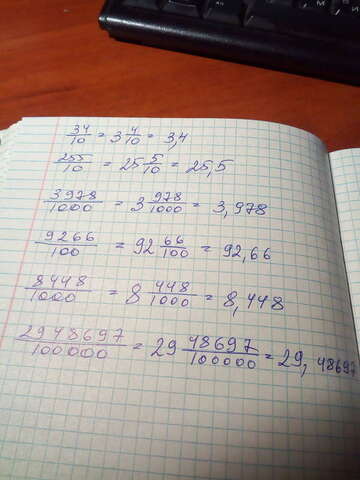 34/10 = 3 4/10 = 3,4
255/10 = 25 5/10 = 25,5
3978/1000 = 3 978/1000 = 3,978
9266/100 = 92 66/100 = 92,66
8448/1000 = 8 448/1000 = 8,448
2948697/100000 = 29 48697/100000 = 29,48697